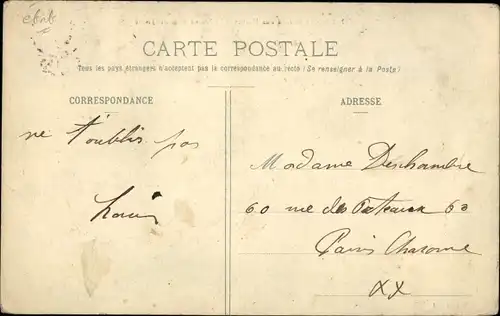 CARTE POSTALE
Tous les pays étrangers n'acceptent pas la correspondance au recto (Se renseigner à la Poste)
CORRESPONDANCE
ADRESSE
ne t'oublie pas
Madame Deschambre
60 rue des 60
Paris Charonne
XX